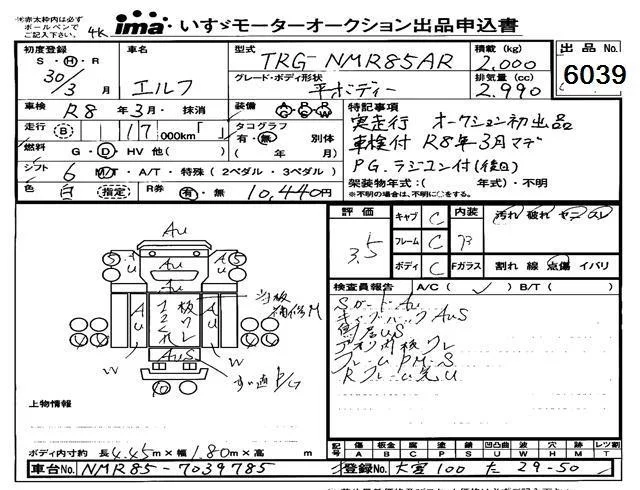 ※赤太枠内は必ず
ボールペンで
ご記入下さい。
4K
ima いすゞモーターオークション出品申込書
初度登録 車名 型式 TRG-NMR85AR 積載(kg) 2,000 出品No. 6039
S・H・R 30/3月 エルフ グレード・ボディー形状 平ボディー 排気量(cc) 2.990
車検 R8年3月・抹消 装備
特記事項
走行 B 17 000km タコグラフ 有・無 別体 (年 月)
実走行 オークション初出品
車検付 R8年3月マデ
燃料 G・D・HV 他( )
シフト 6 M/T・A/T・特殊(2ペダル・3ペダル)
PG.ラジコン付(後日)
色 白 指定 R券 有・無 10,440円
架装物年式:( 年式)・不明
※不明の場合は、不明に○をする。
評価 3.5 キャブ C 内装 汚れ 破れ
フレーム C
ボディ C Fガラス 割れ 線 点傷 イバリ
検査員報告 A/C( ✓ ) B/T( )
SガードAU
キャブバックAUS
アオリ内板ワレ
フレームPM-S
Au
Au
S S
AU AU
AU AU
AUS
W W
上物情報
ボディ内寸約 長4.45m×幅1.80m×高 m
記号 傷 板金 腐 塗 錆 凹凸曲 波 穴 跡 レツ割
A B C P S U W H M T
車台No. NMR85-7039785 登録No. 大宮100 た 29-50